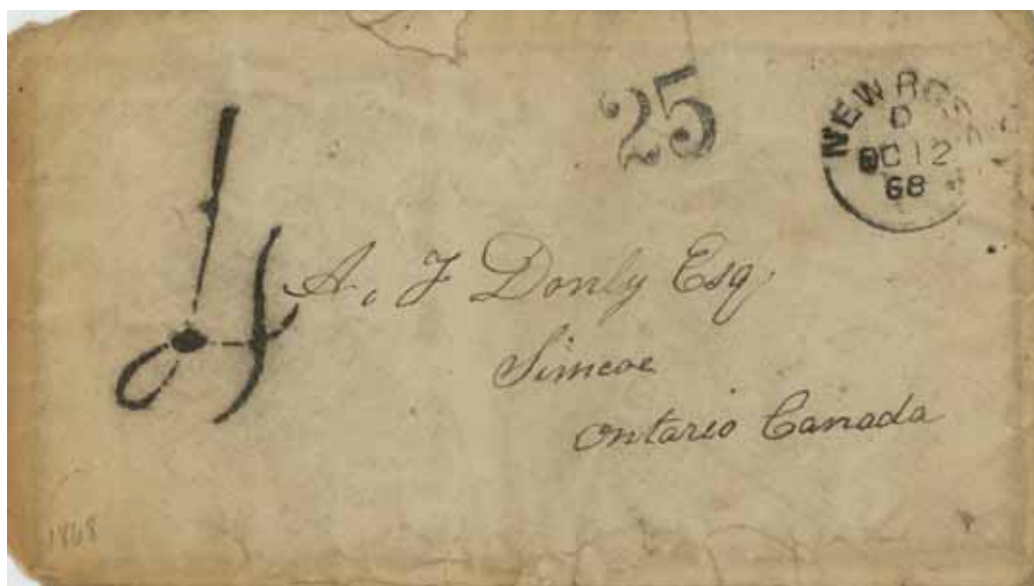 25
D
OC 12
68
4
A. J Donly Esq
Simcoe
Ontario Canada
1868